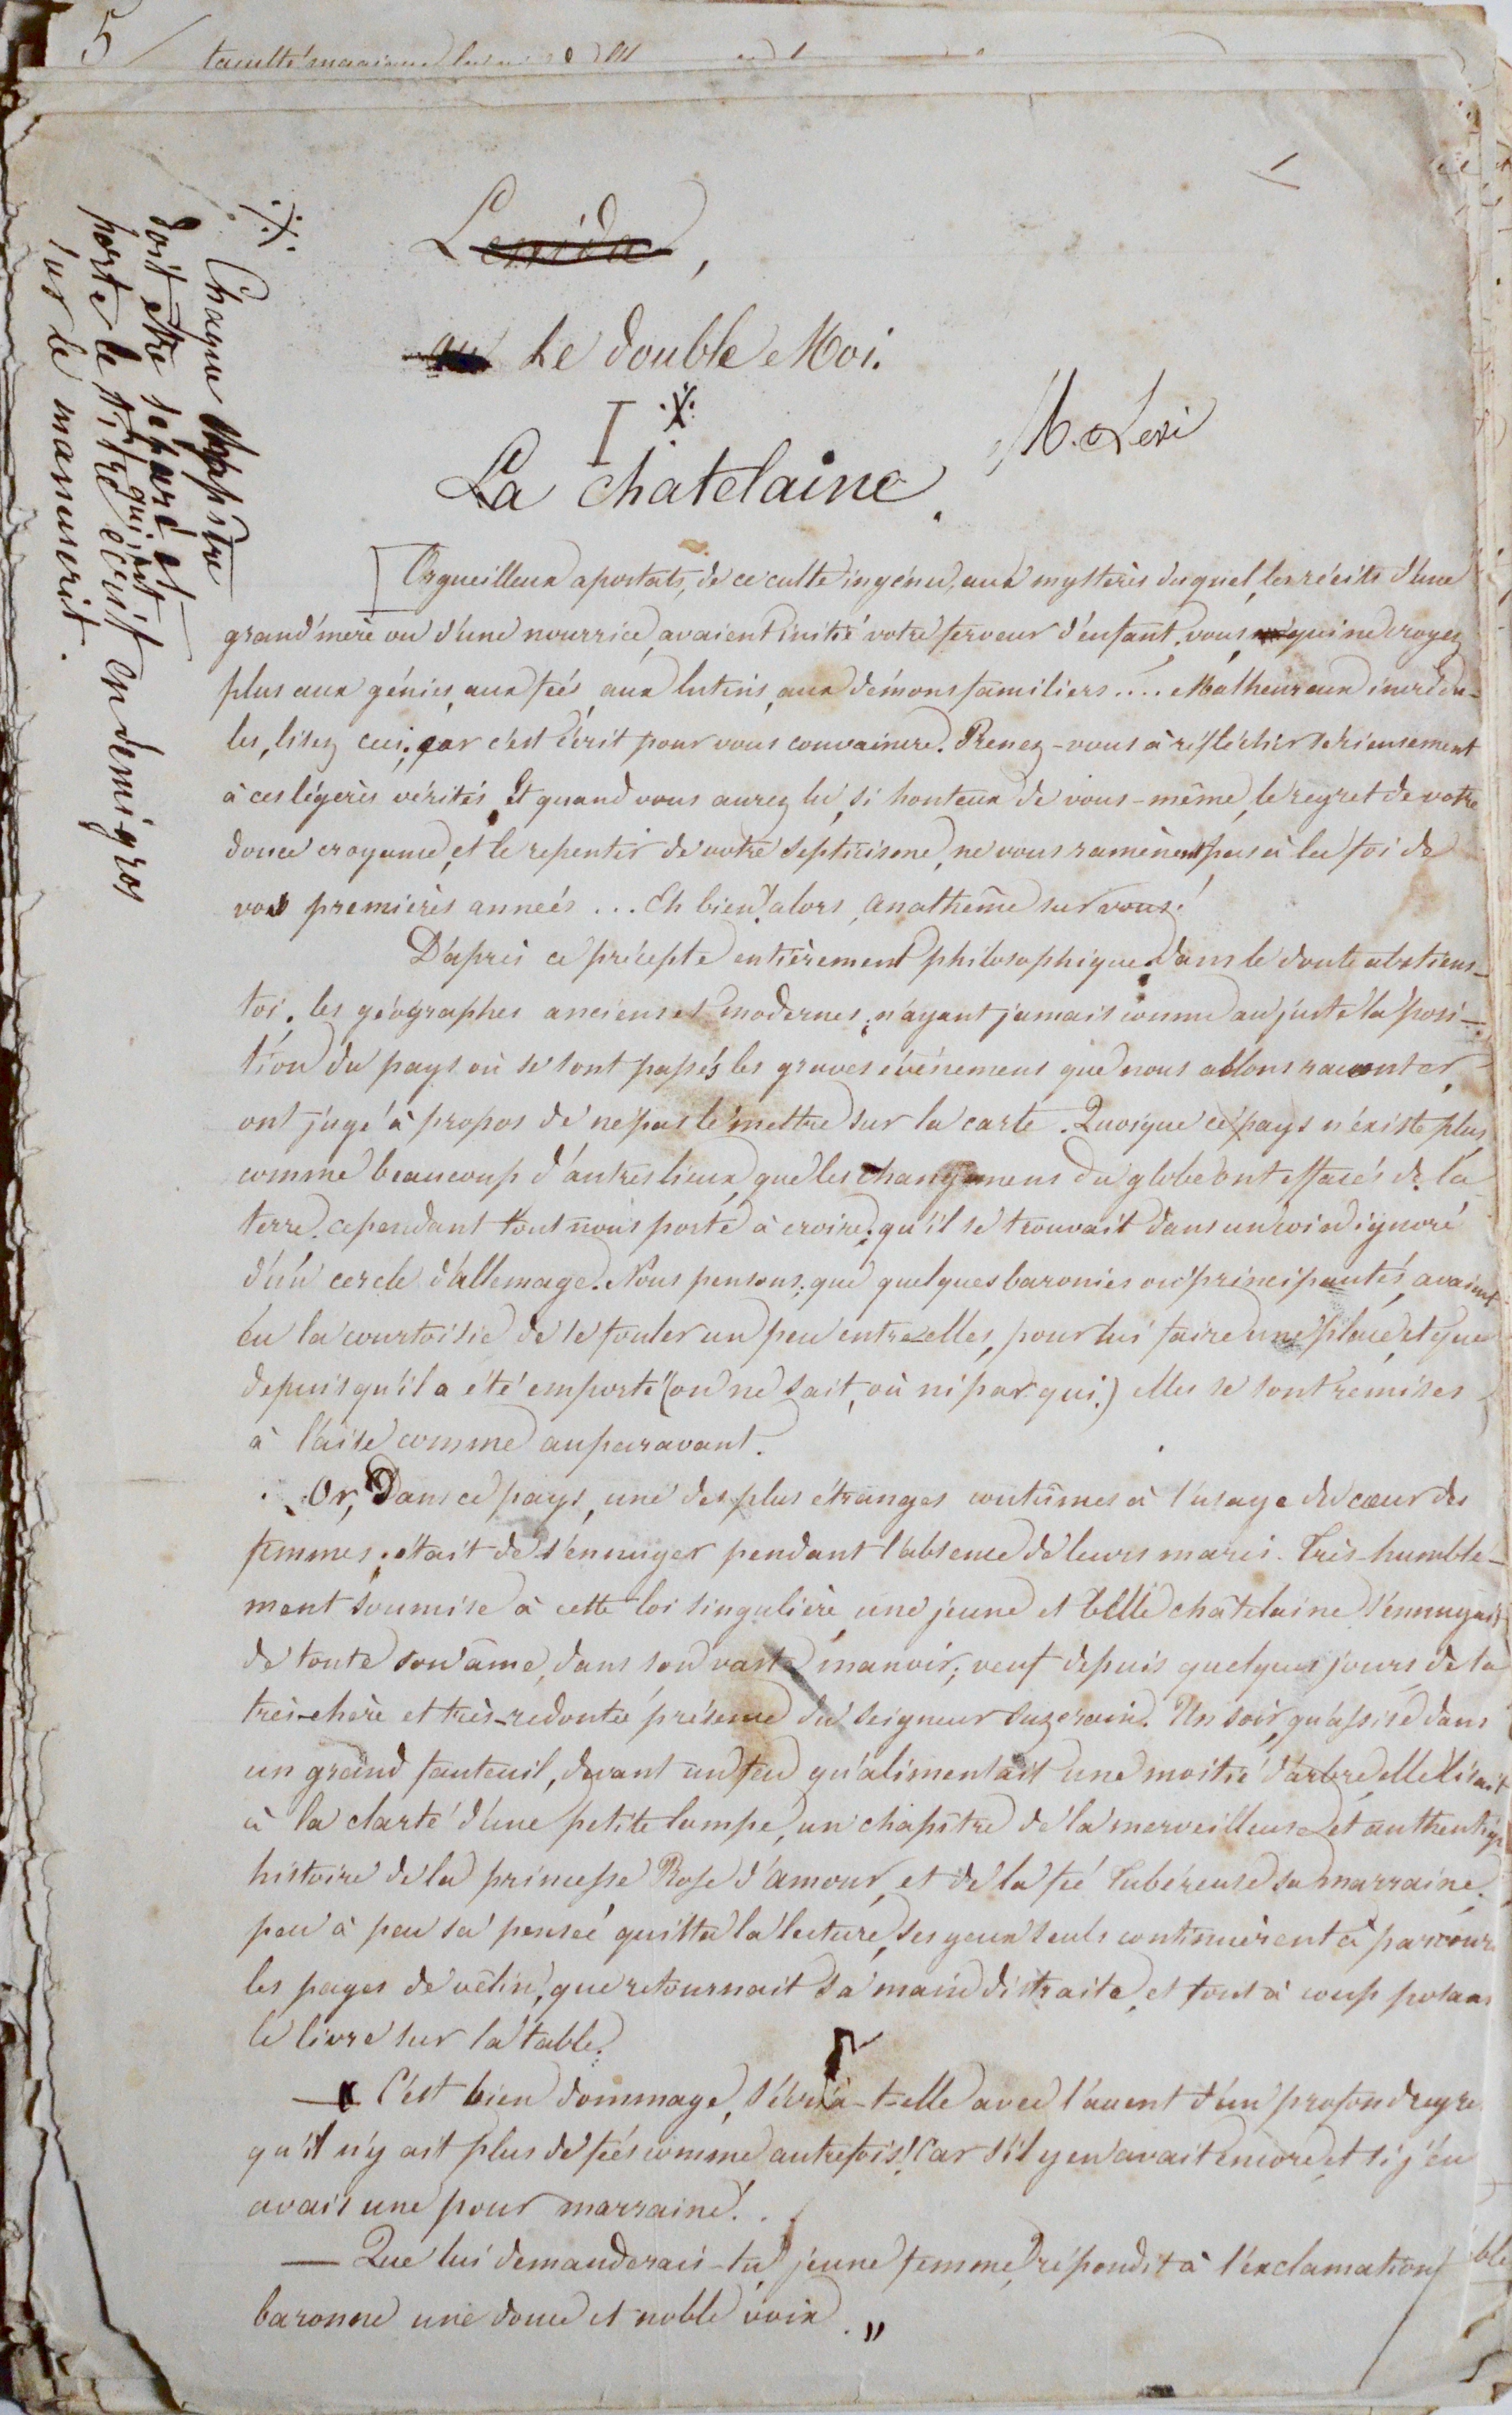 5
Lenida,
ou Le double Moi.
I
M. Levi
La chatelaine.
Chaque chapitre
doit être séparé et
porter le titre qui est écrit en demi-gros
sur le manuscrit.
Orgueilleux apostats, de ce culte ingénu, aux mystères duquel, les récits d'une
grand'mère ou d'une nourrice, avaient initié votre ferveur d'enfant, vous, qui ne croyez
plus aux génies, aux fées, aux lutins, aux démons familiers.... Malheureux incrédu-
les, lisez ceci, car c'est écrit pour vous convaincre. Prenez-vous à réfléchir sérieusement
à ces légères vérités, Et quand vous aurez lu, si honteux de vous-même, le regret de votre
douce croyance, et le repentir de votre septicisme, ne vous ramènent pas à la foi de
vos premières années ... Eh bien! alors, anathème sur vous!
D'après ce précepte entièrement philosophique: Dans le doute abstiens-
toi, les géographes anciens et modernes, n'ayant jamais connu au juste la posi-
tion du pays où se sont passés les graves événemens que nous allons raconter,
ont jugé à propos de ne pas le mettre sur la carte. Quoique ce pays n'existe plus,
comme beaucoup d'autres lieux que les changemens du globe ont effacés de la
terre, cependant tout nous porte à croire, qu'il se trouvait dans un coin ignoré
d'un cercle d'allemage. Nous pensons, que quelques baronies ou principautés, avaient
eu la courtoisie de se fouler un peu entre elles, pour lui faire une place, et que
depuis qu'il a été emporté (on ne sait, où ni par qui.) elles se sont remises
à l'aise comme auparavant.
Or, Dans ce pays, une des plus étranges coutumes à l'usage du cœur des
femmes, était de s'ennuyer pendant l'absence de leurs maris. Très-humble-
ment soumise à cette loi singulière, une jeune et belle châtelaine s'ennuyait
de toute son âme, dans son vaste manoir, veuf depuis quelques jours de la
très-chère et très-redoutée présence du seigneur suzerain. Un soir, qu'assise dans
un grand fauteuil, devant un feu qu'alimentait une moitié d'arbre, elle lisait
à la clarté d'une petite lampe, un chapitre de la merveilleuse et authentiq
histoire de la princesse Rose d'amour, et de la fée Tubéreuse sa marraine,
peu à peu sa pensée quitta la lecture, ses yeux seuls continuèrent à parcour
les pages de vélin, que retournait sa main distraite, et tout à coup posant
le livre sur la table:
— C'est bien dommage, s'écria-t-elle avec l'accent d'un profond regre
qu'il n'y ait plus de fées comme autrefois! Car s'il y en avait encore, et si j'en
avais une pour marraine!..
— Que lui demanderais-tu jeune femme, répondit à l'exclamation
baronne une douce et noble voix.